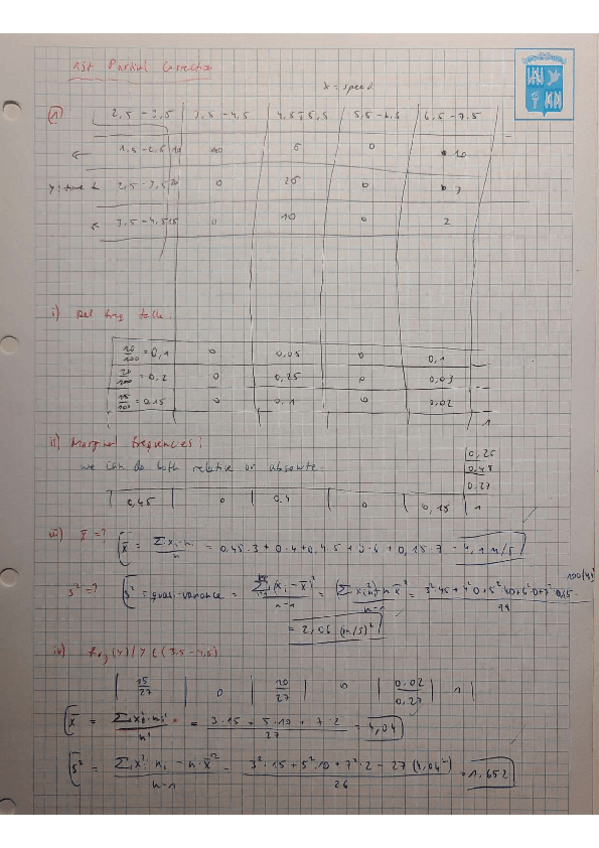 1st Partial Correction
x = speed
1) 2,5 - 3,5 3,5 - 4,5 4,5 - 5,5 5,5 - 6,5 6,5 - 7,5
1,5 - 2,5 10 0 5 0 10
2,5 - 3,5 20 0 25 0 3
3,5 - 4,5 15 0 10 0 2
i) Rel freq table.
10/100 = 0,1 0 0,05 0 0,1
20/100 = 0,2 0 0,25 0 0,03
15/100 = 0,15 0 0,1 0 0,02
1
ii) Marginal frequencies?
0,25
we can do both relative or absolute.
0,48
0,27
0,45 0 0,4 0 0,15 1
iii) x̄ = ? x̄ = Σ xi·ni / n = 0,45·3 + 0·4 + 0,4·5 + 0·6 + 0,15·7 = 4,4 m/s
s² = ? s² = quasi-variance = Σ(xi - x̄)² / n-1 = (Σ xi² ni) - n x̄² / n-1 =
= 2,06 (m/s)²
iv)
15/27 0 10/27 0 0,02/0,27 1
x̄ = Σ xi·ni / n = 3·15 + 5·10 + 7·2 / 27 = 4,04
s² = Σ xi²·ni - n·x̄² / n-1 = 3²·15 + 5²·10 + 7²·2 - 27 (4,04²) / 26 = 1,652